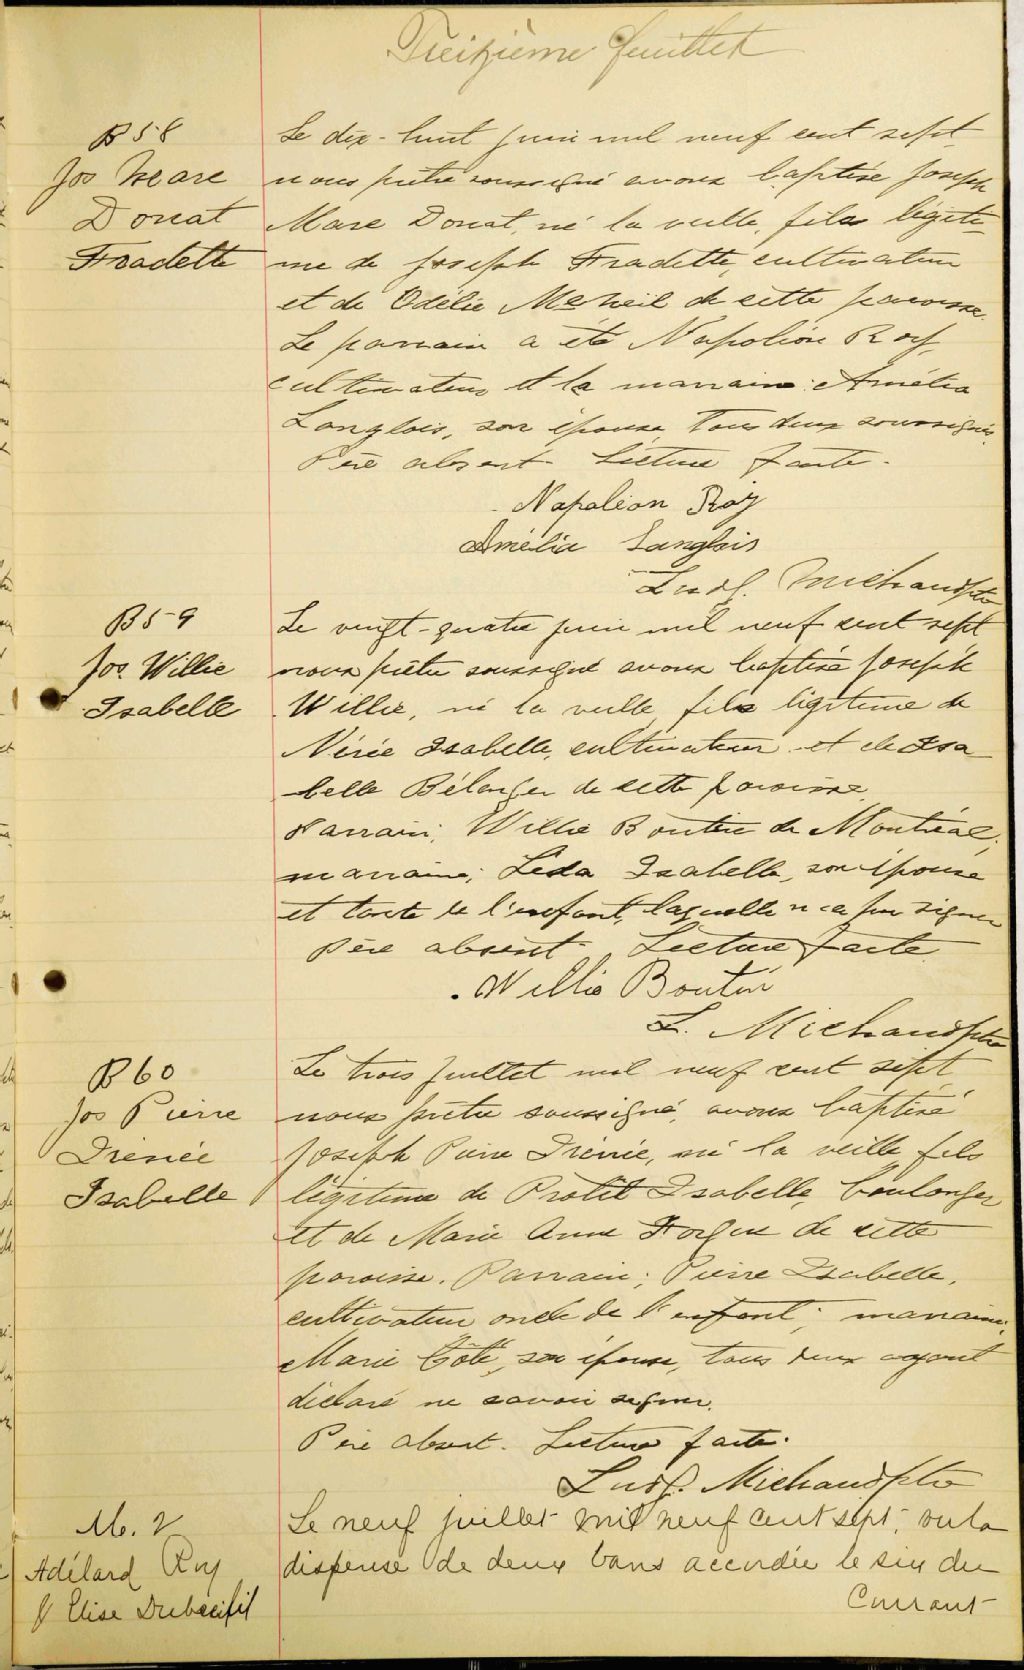 Treizième feuillet
B 58
Jos Marc
Donat
Fradette
Le dix-huit juin mil neuf cent sept
nous prêtre soussigné avons baptisé Joseph
Marc Donat, né la veille, fils légiti-
me de Joseph Fradette, cultivateur
et de Odélie McNeil de cette paroisse.
Le parrain a été Napoléon Roy,
cultivateur et la marraine Amélia
Langlois, son épouse, tous deux soussignés.
Père absent. Lecture faite.
Napoléon Roy
Amélia Langlois
Ludg. Michaud ptre
B 59
Jos. Willie
Isabelle
Le vingt-quatre juin mil neuf cent sept
nous prêtre soussigné avons baptisé Joseph
Willie, né la veille, fils légitime de
Nérée Isabelle, cultivateur et de Isa
belle Bélanger de cette paroisse
Parrain; Willie Boutin de Montréal;
marraine; Léda Isabelle, son épouse
et tante de l'enfant, laquelle n'a pu signer
Père absent. Lecture faite
Willie Boutin
L. Michaud ptre
B 60
Jos Pierre
Irénée
Isabelle
Le trois juillet mil neuf cent sept
nous prêtre soussigné, avons baptisé
Joseph Pierre Irénée, né la veille fils
légitime de Isabelle, boulanger
et de Marie Anne Forgue de cette
paroisse. Parrain; Pierre Isabelle,
cultivateur oncle de l'enfant; marraine;
Marie Côté, son épouse, tous deux ayant
déclaré ne savoir signer.
Père absent. Lecture faite.
Ludg. Michaud ptre
M. 2
Adélard Roy
& Elise
Le neuf juillet mil neuf cent sept, vu la
dispense de deux bans accordée le six du
Courant